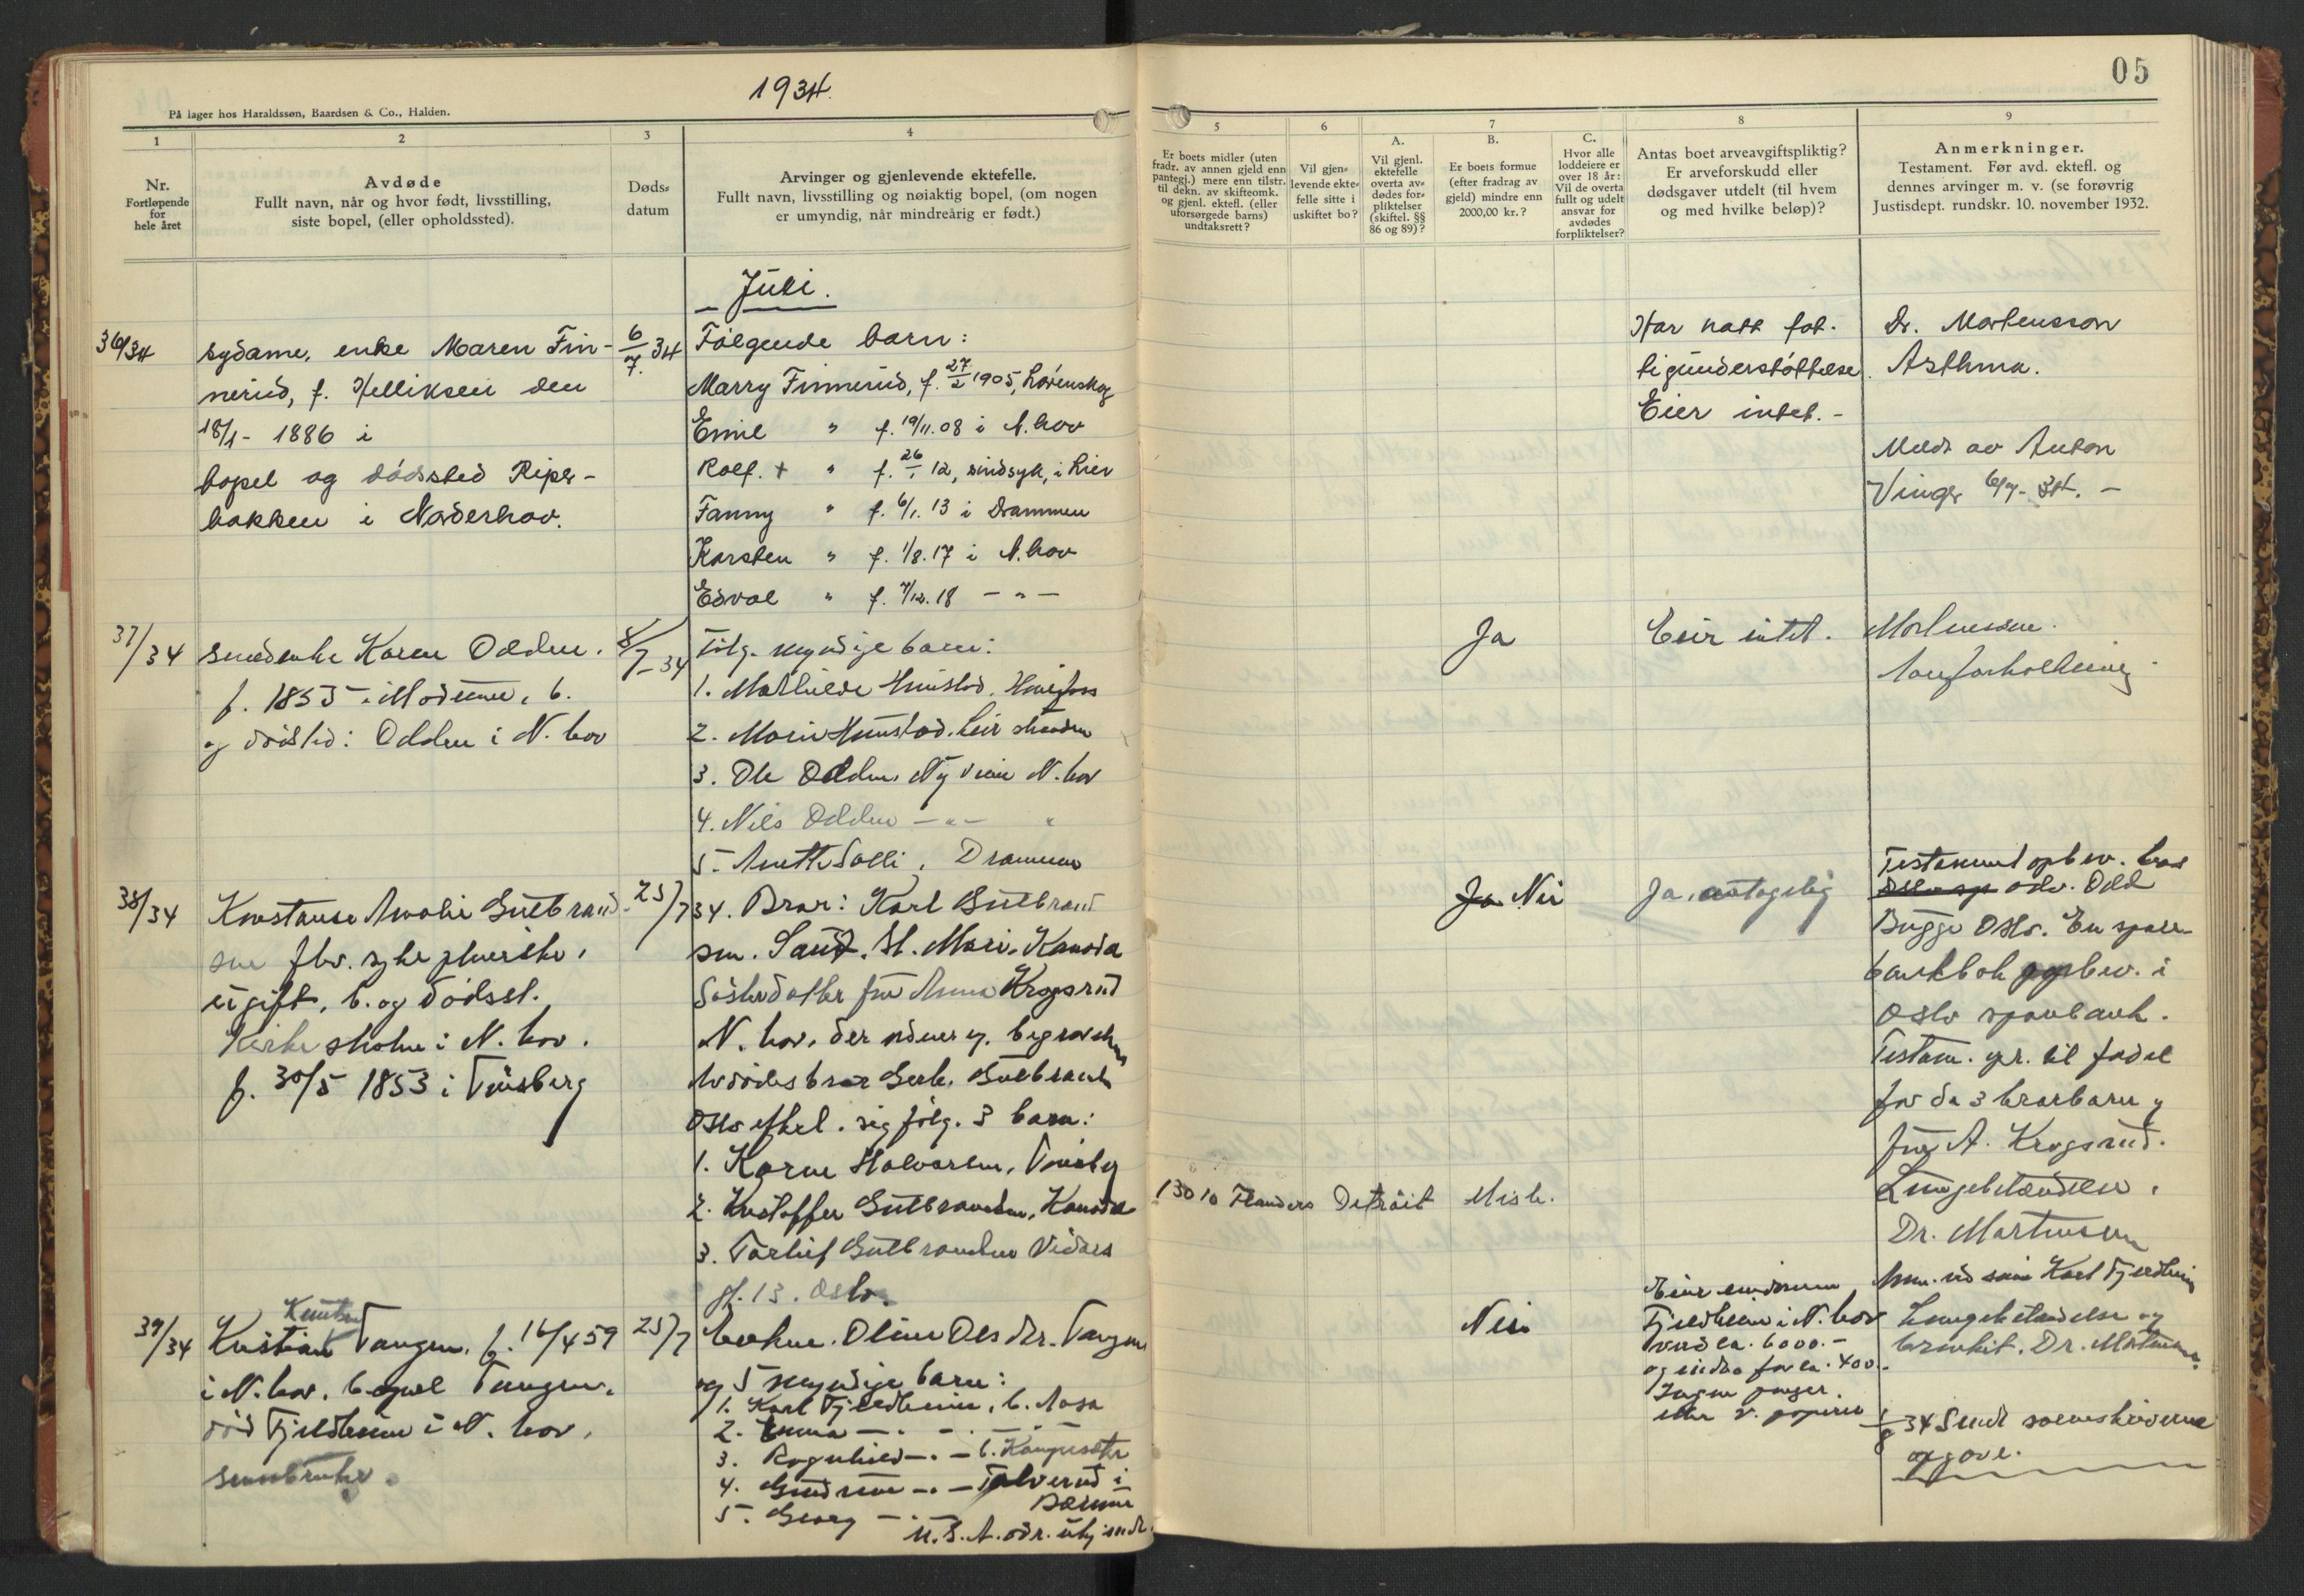 1934.
05
På lager hos Haraldssøn, Baardsen & Co., Halden.
1
Nr.
Fortløpende
for
hele året
2
Avdøde
Fullt navn, når og hvor født, livsstilling,
siste bopel, (eller opholdssted).
3
Døds-
datum
4
Arvinger og gjenlevende ektefelle.
Fullt navn, livsstilling og nøiaktig bopel, (om nogen
er umyndig, når mindreårig er født.)
5
Er boets midler (uten
fradr. av annen gjeld enn
pantegj.) mere enn tilstr.
til dekn. av skifteomk.
og gjenl. ektefl. (eller
uforsørgede barns)
undtaksrett?
6
Vil gjen-
levende ekte-
felle sitte i
uskiftet bo?
7
A.
Vil gjenl.
ektefelle
overta av-
dødes for-
pliktelser
(skiftel. §§
86 og 89)?
B.
Er boets formue
(efter fradrag av
gjeld) mindre enn
2000,00 kr.?
C.
Hvor alle
loddeiere er
over 18 år:
Vil de overta
fullt og udelt
ansvar for
avdødes
forpliktelser?
8
Antas boet arveavgiftspliktig?
Er arveforskudd eller
dødsgaver utdelt (til hvem
og med hvilke beløp)?
9
Anmerkninger.
Testament. Før avd. ektefl. og
dennes arvinger m. v. (se forøvrig
Justisdept. rundskr. 10. november 1932.
Juli.
36/34
sydame, enke Maren Fin-
nerud, f. Helliksen den
18/1- 1886 i
bopel og dødssted Ripe-
bakken i Norderhov.
6/7.34
Følgende barn:
Marry Finnerud, f. 27/2 1905, Lørenskog
Emil " f. 19/11.08 i N.hov
Rolf. + " f. 26/1 12, sindsyk, i Lier
Fanny " f. 6/1.13 i Drammen
Karsten " f. 1/8.17 i N.hov
Edval " f. 7/12.18 - " -
Har hatt fat-
tigunderstøttelse.
Eier intet. -
Dr. Mortensson
Asthma.
Meldt av Anton
Vinger 6/7-34. -
37/34
Karen Odden.
f. 1855 i Modum, b.
og dødsted: Odden i N. hov
8/7-34
Følg. myndige barn:
1. Mathilde Hunstad, Hønefoss
2. Marie Hunstad.
3. Ole Odden, N. hov
4. Nils Odden - " - "
5. Anette Solli, Drammen
Ja
Eier intet.
Mortensson.
38/34
Konstanse Amalie Gulbrand-
sen fhv. sykepleierske,
ugift, b. og dødsst.
Kirkeskolen i N. hov.
f. 30/5 1853 i Tønsberg
25/7 34.
Bror: Karl Gulbrand
sen. Sault. St. Mari, Kanada
Søsterdatter fru Anna Krogsrud
N. hov, der ordner m. begravelsen
Avdødes bror Gulbrands
Oslo efterl. sig følg. 3 barn:
1. Karen Halvorsen, Tønsberg
2. Kristoffer Gulbrandsen, Kanada
13010 Flanders Detroit Mish.
3. Torleif Gulbrandsen Vidars
gt. 13. Oslo.
Ja Nei
Ja, antagelig
Testament opbev. hos
adv. Odd
Bugge Oslo. En spare
bankbok opbev. i
Oslo sparebank.
Testam. gr. til fordel
for de 3 brorbarn og
fru A. Krogsrud.
Lungebetændelse.
Dr. Mortensson
39/34
Knutsen
Kristian Tangen, f. 16/4 59
i N. hov, bopel Tangen,
død Fjeldheim i N. hov,
småbruker.
25/7
Enke. Oline Olsdtr. Tangen
og 5 myndige barn:
1. Karl Fjeldheim, b. Aasa
2. Emma - " -
3. Ragnhild - " - b.
4. Gudrun - " - i
Bærum
5. Georg - " -
U.S.A. adr. ubekjendt.
Nei
Eier eiendommen
Fjeldheim i N. hov
verd ca. 6000.-
og indbo for ca. 400.-
Ingen penger
eller v. papirer
Anm. ved sønn Karl Fjeldheim
Lungebetændelse og
bronkit. Dr. Mortensson.
1/8 34 Sendt
opgave.